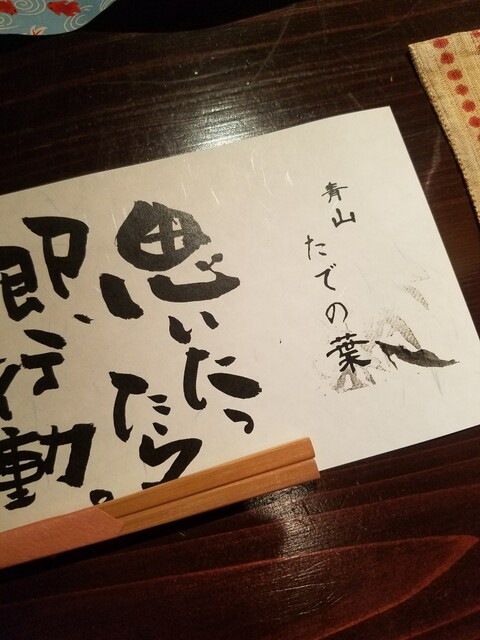 青山
たでの葉
思いたっ
たら
即、行動。